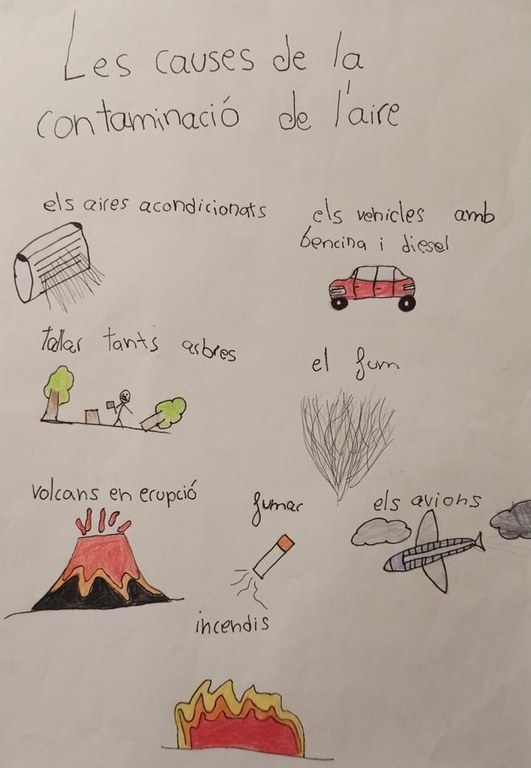 Les causes de la
contaminació de l'aire
els aires acondicionats
els vehicles amb
bencina i diesel
tallar tants arbres
el fum
volcans en erupció
fumar
els avions
incendis